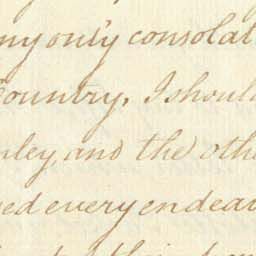 my only consolat
Country, I shoul
nley, and the oth
ed every endea